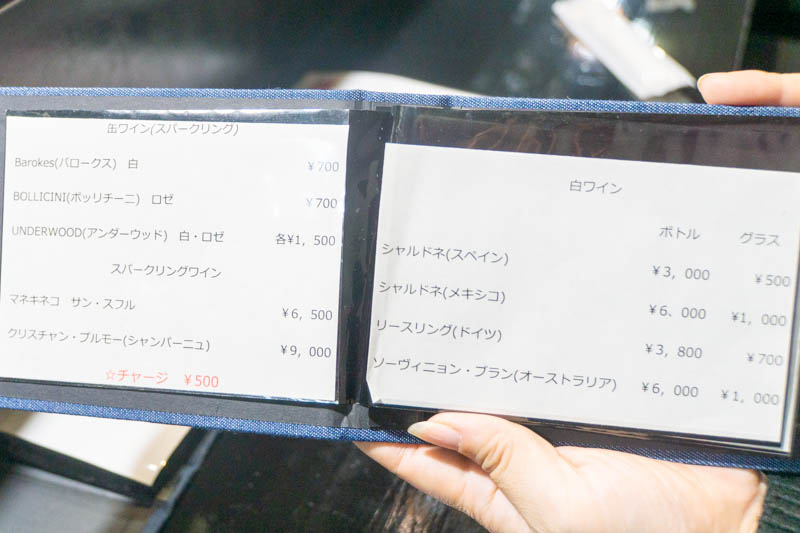 缶ワイン(スパークリング)
Barokes(バロークス) 白 ¥700
BOLLICINI(ボッリチーニ) ロゼ ¥700
UNDERWOOD(アンダーウッド) 白・ロゼ 各¥1,500
スパークリングワイン
マネキネコ サン・スフル ¥6,500
クリスチャン・ブルモー(シャンパーニュ) ¥9,000
☆チャージ ¥500
白ワイン
ボトル グラス
シャルドネ(スペイン) ¥3,000 ¥500
シャルドネ(メキシコ) ¥6、000 ¥1,000
リースリング(ドイツ) ¥3,800 ¥700
ソーヴィニョン・ブラン(オーストラリア) ¥6,000 ¥1,000